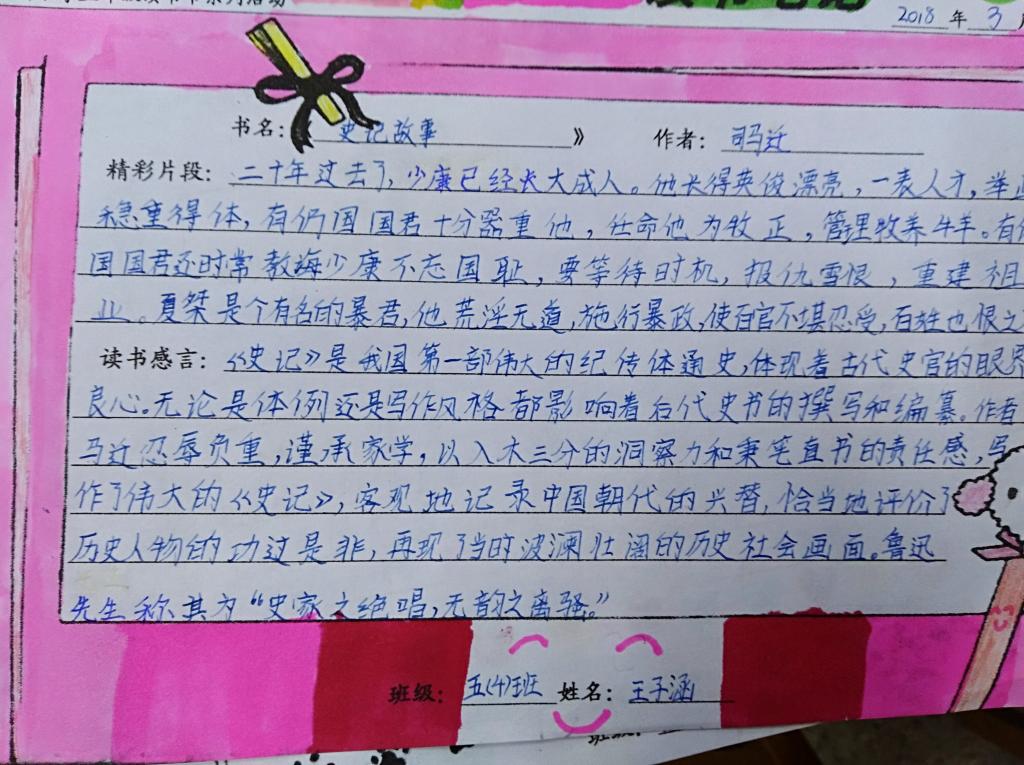 2018 年 3 月
书名：《 史记故事 》 作者：司马迁
精彩片段：二十年过去了，少康已经长大成人。他长得英俊漂亮，一表人才，举止
稳重得体，有仍国国君十分器重他，任命他为牧正，管理牧养牛羊。有仍
国国君还时常教诲少康不忘国耻，要等待时机，报仇雪恨，重建祖
业。夏桀是个有名的暴君，他荒淫无道，施行暴政，使百官不堪忍受，百姓也恨之
读书感言：《史记》是我国第一部伟大的纪传体通史，体现着古代史官的眼界
良心。无论是体例还是写作风格都影响着后代史书的撰写和编纂。作者
马迁忍辱负重，谨承家学，以入木三分的洞察力和秉笔直书的责任感，写
作了伟大的《史记》，客观地记录中国朝代的兴替，恰当地评价了
历史人物的功过是非，再现了当时波澜壮阔的历史社会画面。鲁迅
先生称其为“史家之绝唱，无韵之离骚。”
班级：五(4)班 姓名：王子涵